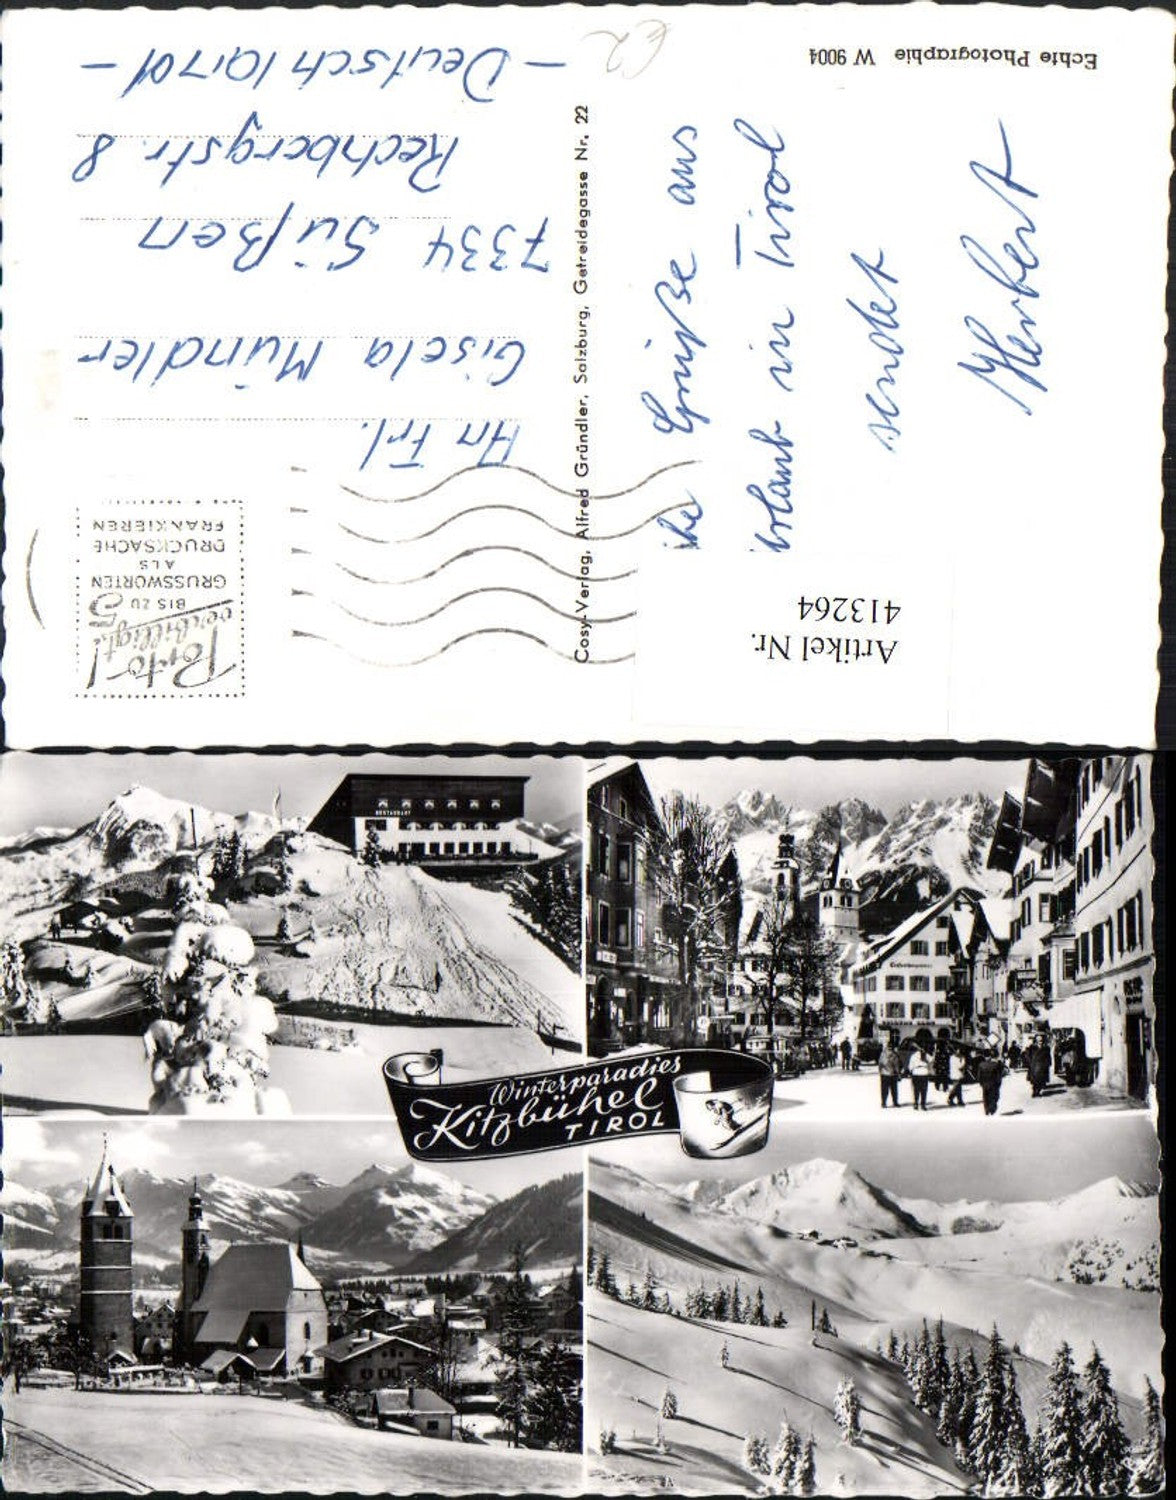 Echte Photographie W 9004
Die Grüße aus
Urlaub in Tirol
sendet
Herbert
Cosy-Verlag, Alfred Gründler, Salzburg, Getreidegasse Nr. 22
Porto!
verbilligt!
BIS ZU 5
GRUSSWORTEN
ALS
DRUCKSACHE
FRANKIEREN
An Frl.
Gisela Mündler
7334 Süßen
Rechbergstr. 8
- Deutschland -
€2
Artikel Nr.
413264
RESTAURANT
Winterparadies
Kitzbühel
TIROL